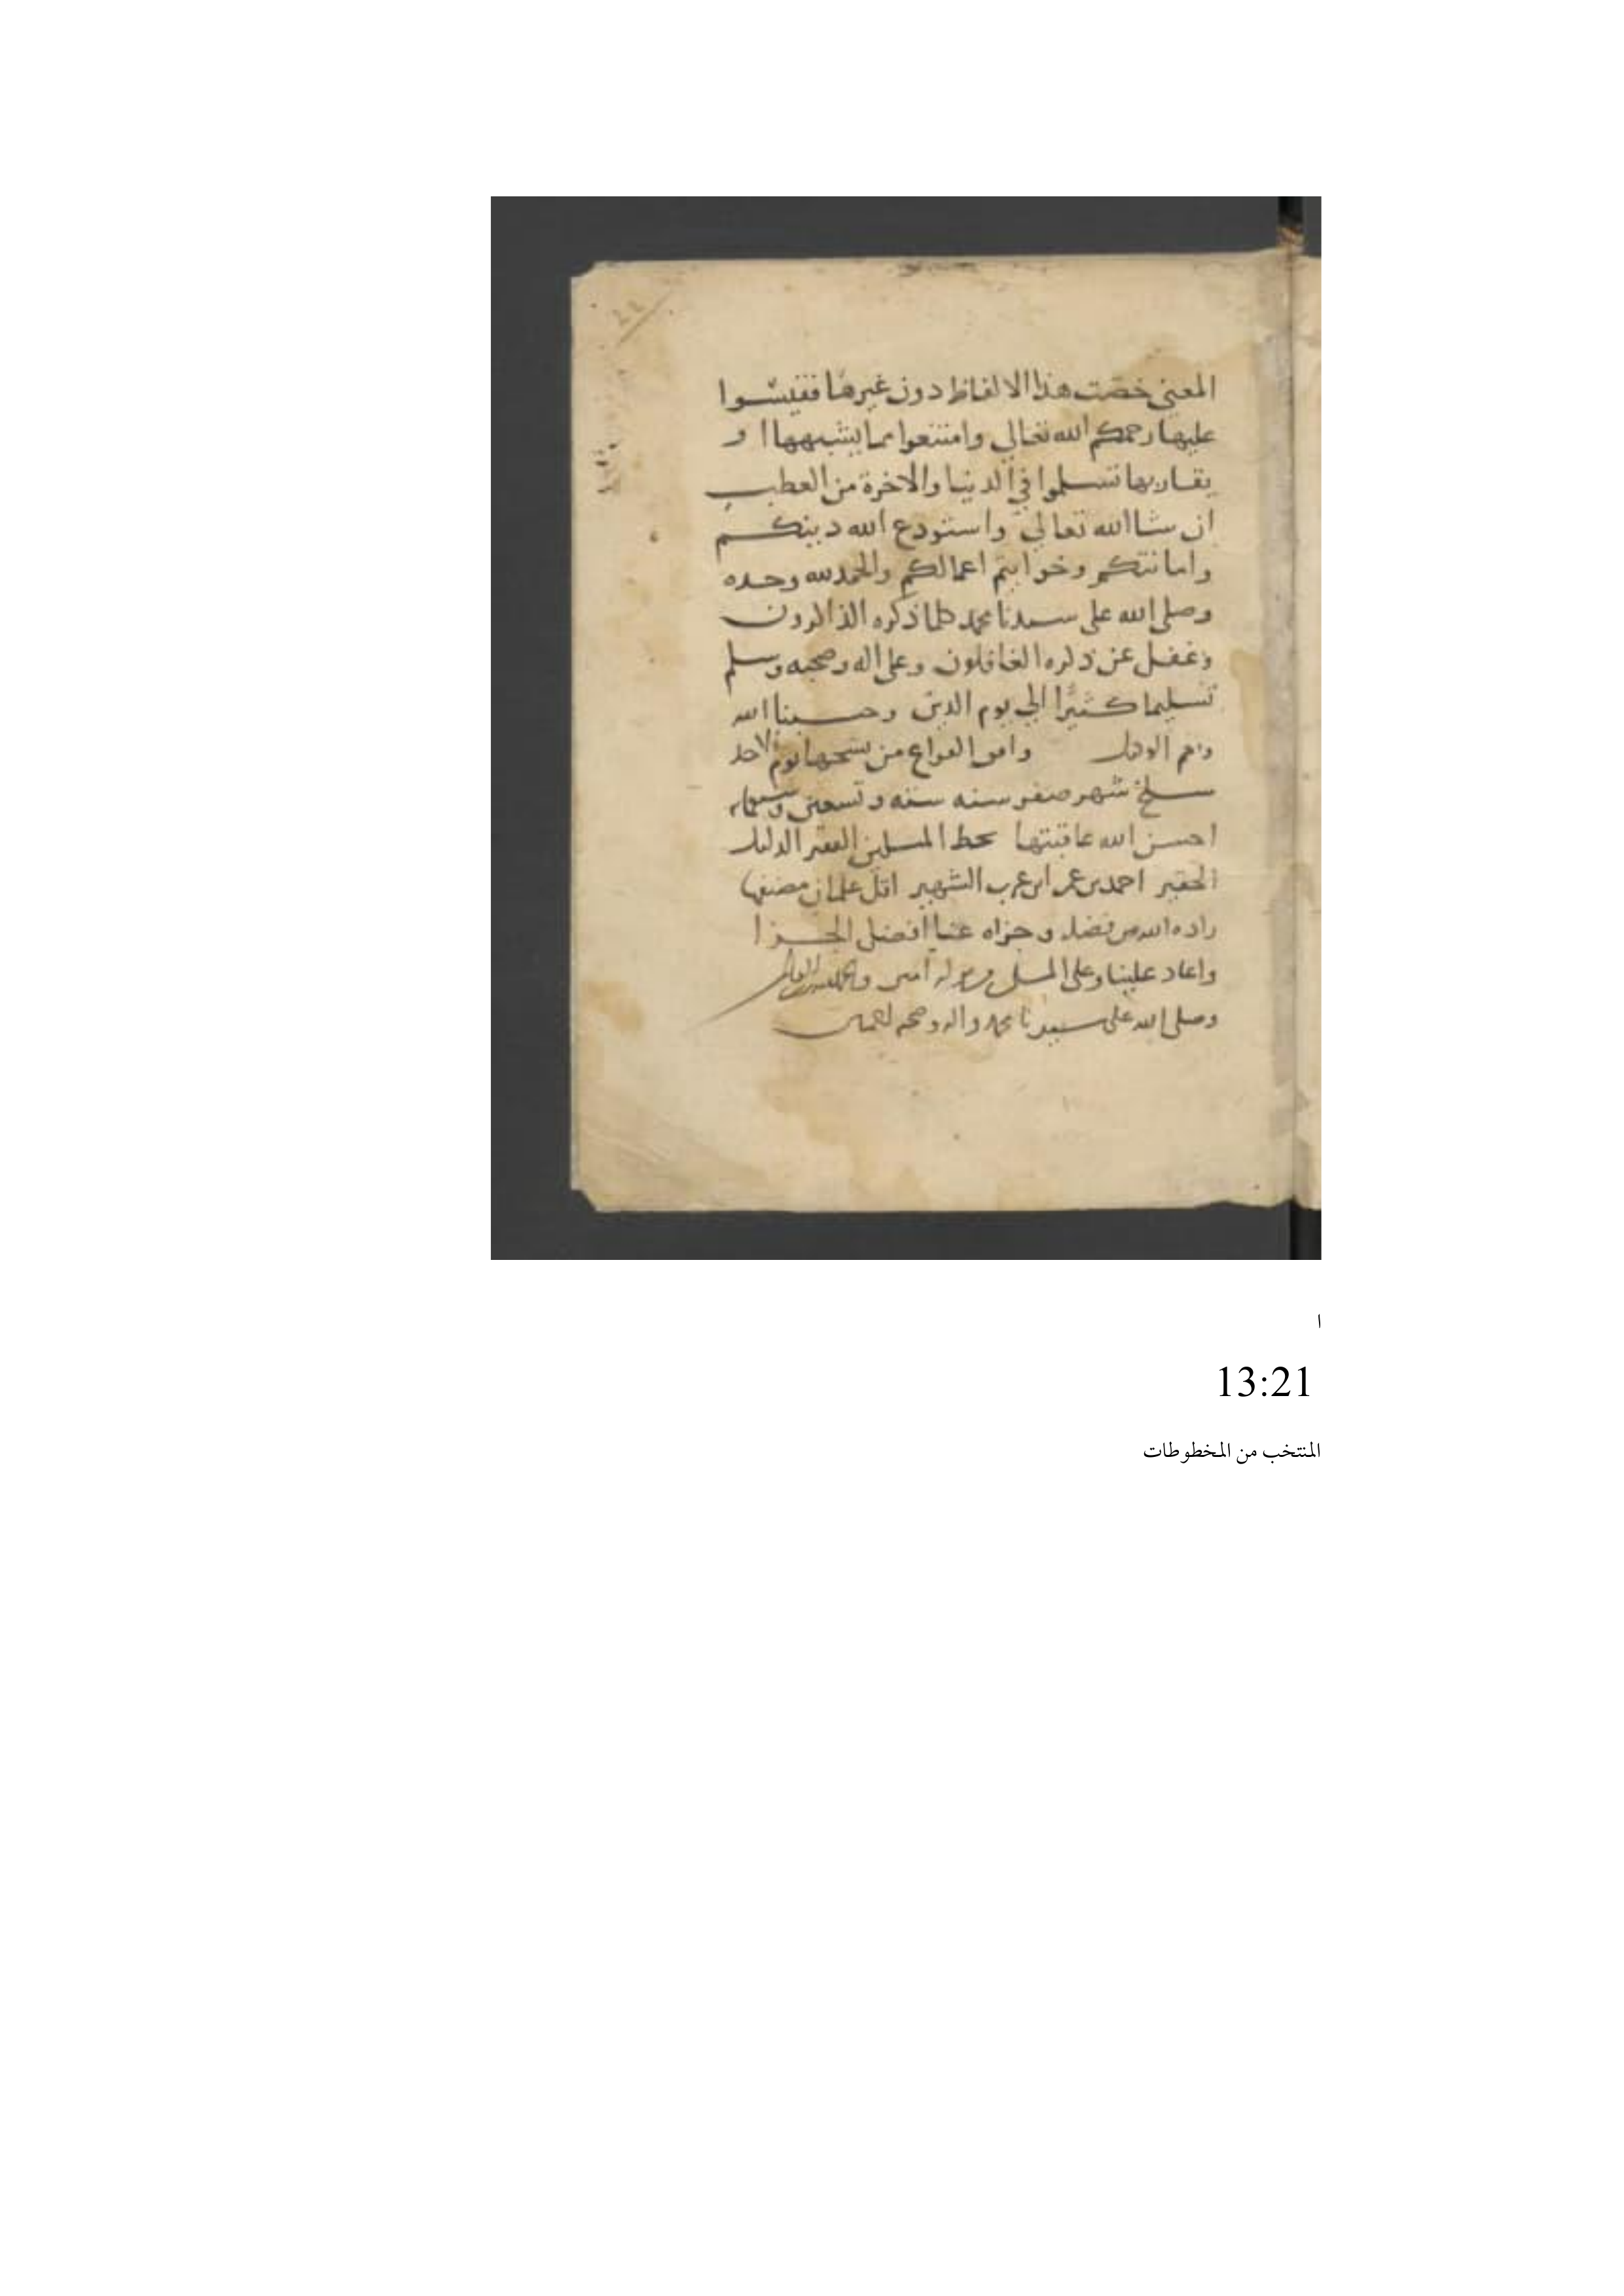 المعني خصت هذا الالفاظ دون غيرها فقيسوا
عليها رحمكم الله تعالي وامتنعوا مما يشبهها او
يقاربها تسلموا في الدنيا والاخرة من العطب
ان شا الله تعالي واستودع الله دينكم
وامانتكم وخواتيم اعمالكم والحمد لله وحده
وصلي الله علي سيدنا محمد كلما ذكره الذاكرون
وغفل عن ذكره الغافلون وعلي اله وصحبه وسلم
تسليما كثيرا الي يوم الدين وحسبنا الله
ونعم الوكيل وافق الفراغ من نسخها يوم الاحد
سلخ شهر صفر سنه سته وتسعين وسبعمايه
احسن الله عاقبتها بخط المسلمين الفقير الذليل
الحقير احمد بن عمر ابن عرب الشهير اقل غلمان مصنفها
زاده الله من فضله وجزاه عنا افضل الجزا
واعاد علينا وعلي المسلمين من بركته امين والحمد لله رب العالمين
وصلي الله علي سيدنا محمد واله وصحبه اجمعين
ا
13:21
المنتخب من المخطوطات